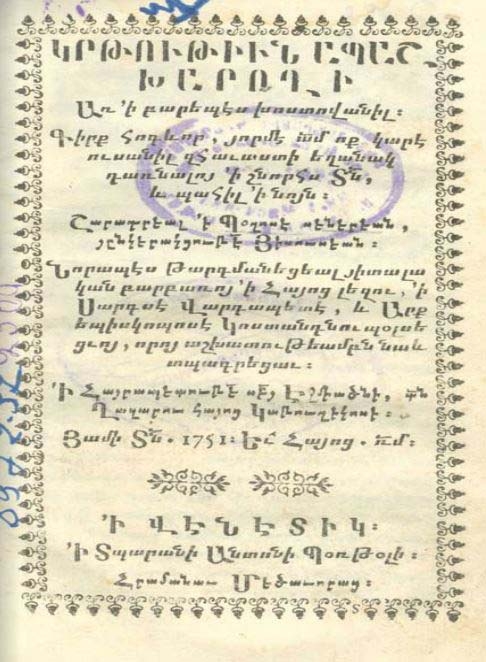 ԿՐԹՈՒԹԻՒՆ ԱՊԱՇ֊
ԽԱՐՈՂ՚Ի
Առ ՚ի բարեպէս խոստովանիլ։
Գիրք հոգևոր, յորմէ ամ ոք կարէ
ուսանիլ զհաւաստի եղանակ
դառնալոյ ՚ի շնորհս Տն,
և պահիլ ՚ի նոյն։
Շարադրեալ ՚ի Պօղոսէ սէնէրեան,
յընկերակցութէ Յիսուսեան։
Նորապէս Թարգմանեցեալ յիտալա
կան բարբառոյ ՚ի Հայոց լեզու, ՚ի
Սարգսէ Վարդապետէ, և Արք
եպիսկոպոսէ Կոստանդնուպօլսե
ցւոյ, որոյ աշխատութեամբն նաև
տպագրեցաւ։
՚Ի Հայրապետութէ սբյ Էջմիածնի, տն
Ղազարու հայոց Կաթուղիկոսի։
Յամի Տն. 1751։ Եւ Հայոց. ռմ։
՚Ի ՎԷՆԷՏԻԿ։
՚Ի Տպարանի Անտօնի Պօռթօլի։
Հրամանաւ Մեծաւորաց։